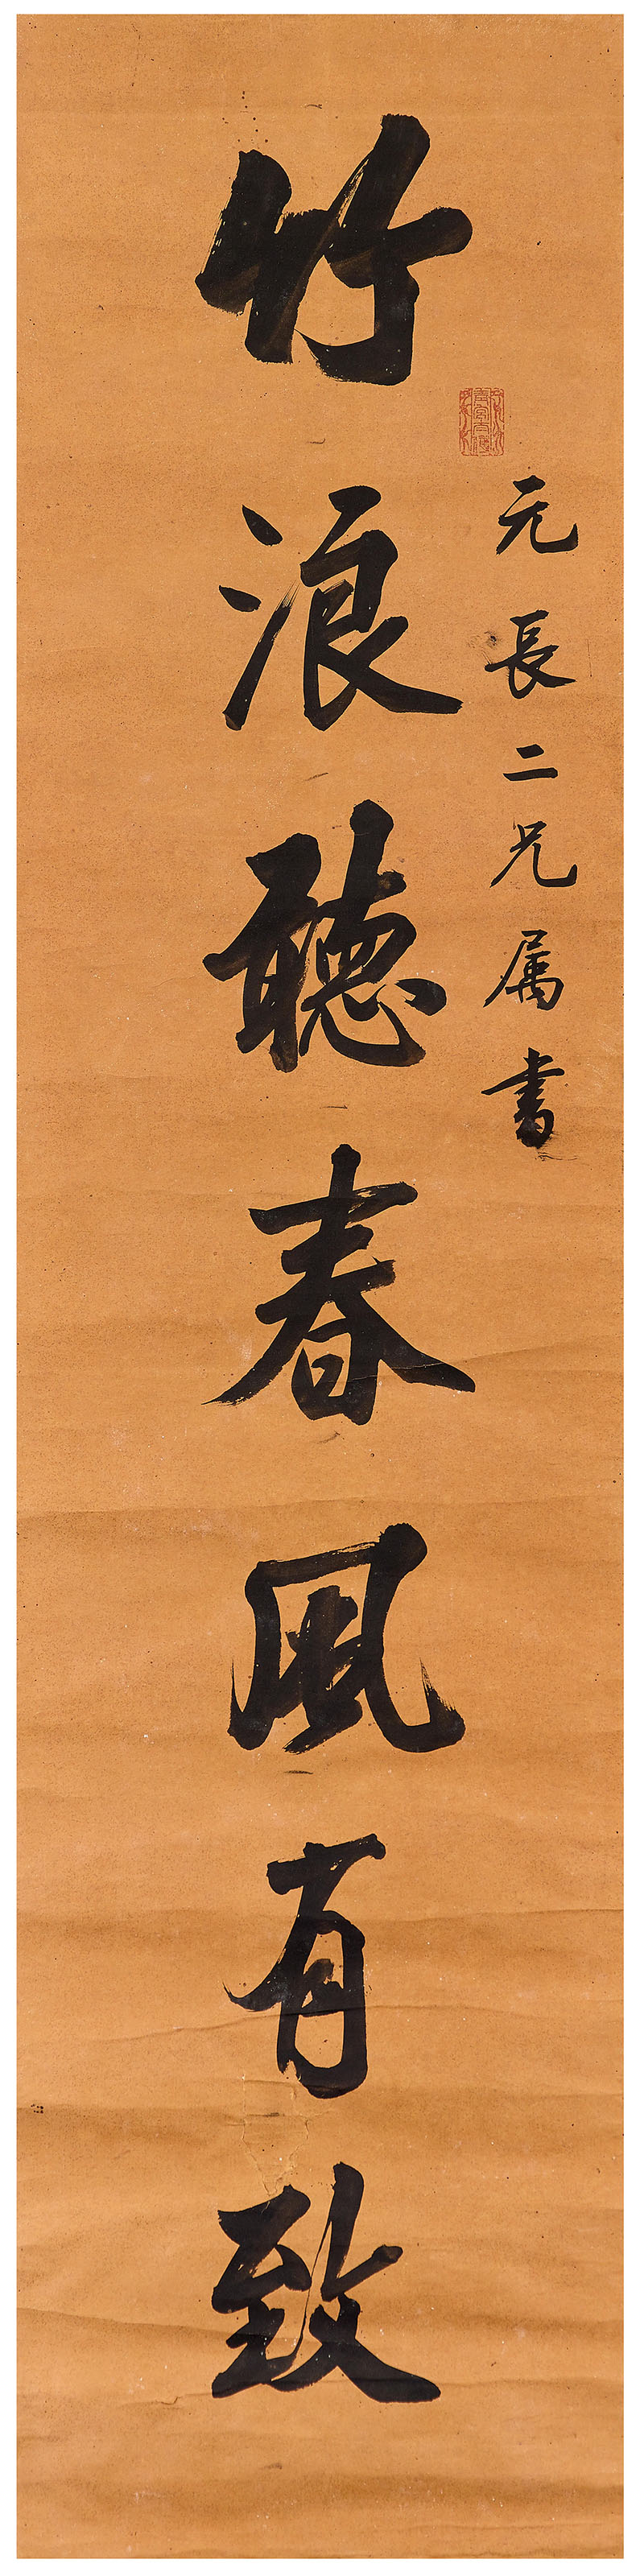 元長二兄属書
竹浪聽春風有致